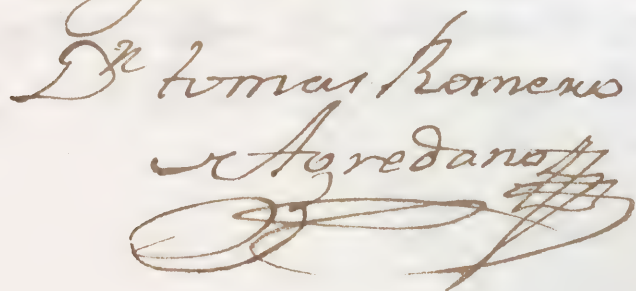 Dn tomas Romero
Agredano